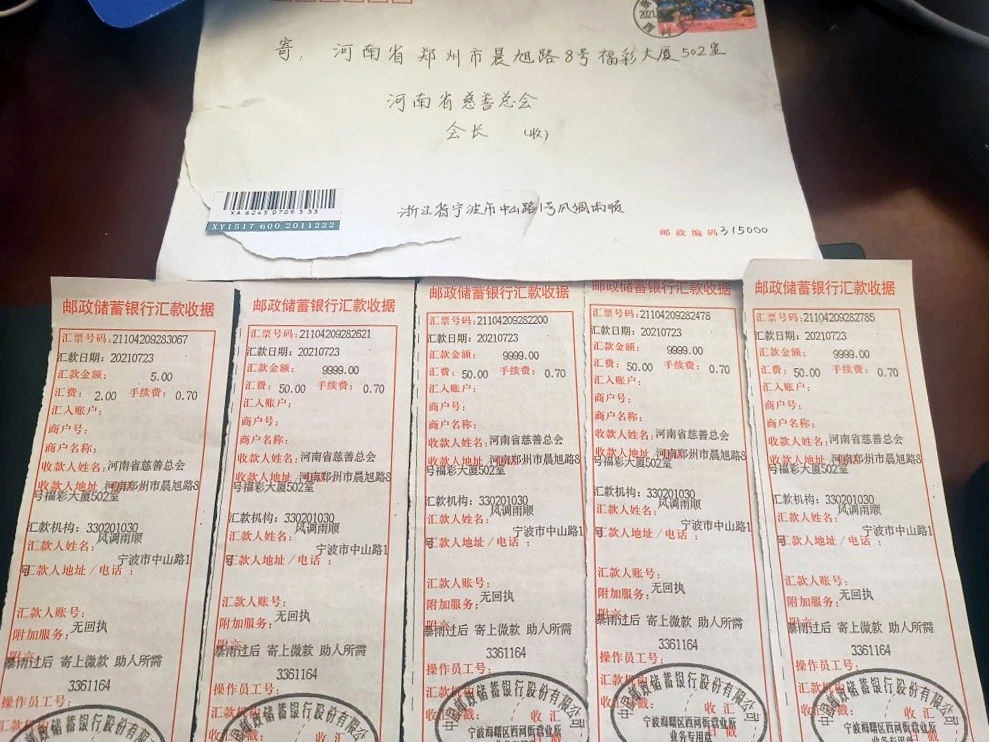 2021
寄: 河南省郑州市晨旭路8号福彩大厦502室
河南省慈善总会
会长 (收)
XA 6245 0709 3 33
XY1517 600 2011222
浙江省宁波市中山路1号风调雨顺
邮政编码315000
邮政储蓄银行汇款收据
汇票号码:21104209283067
汇款日期: 20210723
汇款金额: 5.00
汇费: 2.00 手续费: 0.70
汇入账户:
商户号:
商户名称:
收款人姓名:河南省慈善总会
收款人地址:河南郑州市晨旭路8
号福彩大厦502室
汇款机构: 330201030
汇款人姓名:风调雨顺
宁波市中山路1
号汇款人地址/电话:
汇款人账号:
附加服务:无回执
附言:
暴雨过后 寄上微款 助人所需
3361164
操作员工号:
邮政储蓄银行汇款收据
汇票号码:21104209282621
汇款日期: 20210723
汇款金额: 9999.00
汇费: 50.00 手续费: 0.70
汇入账户:
商户号:
商户名称:
收款人姓名:河南省慈善总会
收款人地址:河南郑州市晨旭路8
号福彩大厦502室
汇款机构: 330201030
汇款人姓名:风调雨顺
宁波市中山路1
号汇款人地址/电话:
汇款人账号:
附加服务:无回执
附言:
暴雨过后 寄上微款 助人所需
3361164
操作员工号:
邮政储蓄银行汇款收据
汇票号码:21104209282200
汇款日期: 20210723
汇款金额: 9999.00
汇费: 50.00 手续费: 0.70
汇入账户:
商户号:
商户名称:
收款人姓名:河南省慈善总会
收款人地址:河南郑州市晨旭路8
号福彩大厦502室
汇款机构: 330201030
汇款人姓名:风调雨顺
宁波市中山路1
号汇款人地址/电话:
汇款人账号:
附加服务:无回执
附言:
暴雨过后 寄上微款 助人所需
3361164
操作员工号:
中国邮政储蓄银行股份有限公司
宁波海曙区西河街营业所
业务专用章
邮政储蓄银行汇款收据
汇票号码:21104209282478
汇款日期: 20210723
汇款金额: 9999.00
汇费: 50.00 手续费: 0.70
汇入账户:
商户号:
商户名称:
收款人姓名:河南省慈善总会
收款人地址:河南郑州市晨旭路8
号福彩大厦502室
汇款机构: 330201030
汇款人姓名:风调雨顺
宁波市中山路1
号汇款人地址/电话:
汇款人账号:
附加服务:无回执
附言:
暴雨过后 寄上微款 助人所需
3361164
操作员工号:
中国邮政储蓄银行股份有限公司
宁波海曙区西河街营业所
业务专用章
邮政储蓄银行汇款收据
汇票号码:21104209282785
汇款日期: 20210723
汇款金额: 9999.00
汇费: 50.00 手续费: 0.70
汇入账户:
商户号:
商户名称:
收款人姓名:河南省慈善总会
收款人地址:河南郑州市晨旭路8
号福彩大厦502室
汇款机构: 330201030
汇款人姓名:风调雨顺
宁波市中山路1
号汇款人地址/电话:
汇款人账号:
附加服务:无回执
附言:
暴雨过后 寄上微款 助人所需
3361164
操作员工号:
中国邮政储蓄银行股份有限公司
宁波海曙区西河街营业所
业务专用章